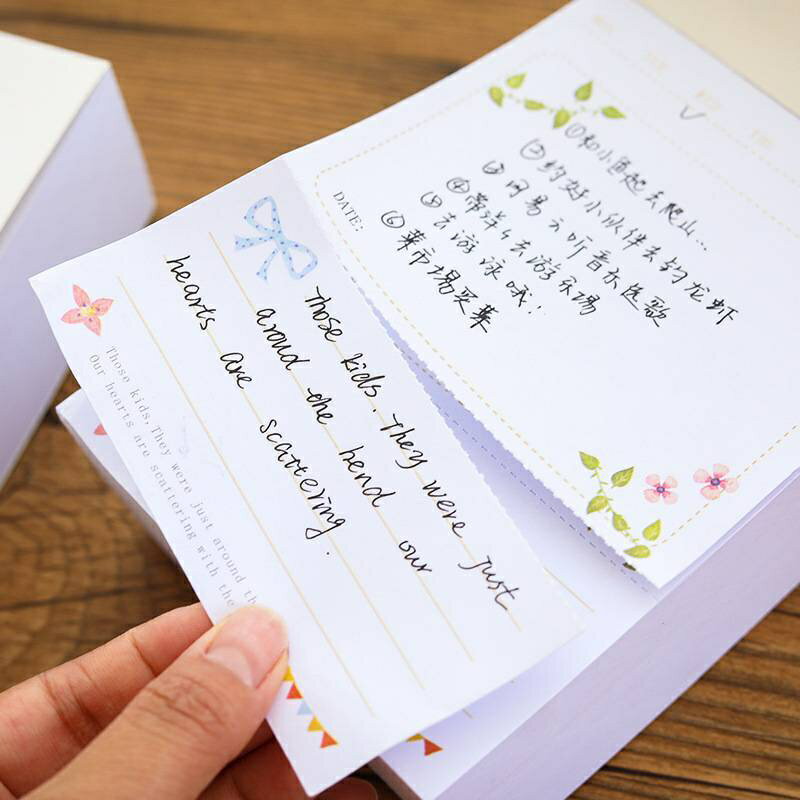 DATE:
①和小鱼起去爬山..
②约好小伙伴去钓龙虾
③网易云听音乐选歌
④带洋洋去游乐场
⑤去游泳哦..
⑥菜市場买菜
Those kids. They were just
aroud the hend our
hearts are scattering.
Those kids, They were just around th
Our hearts are scattering with the